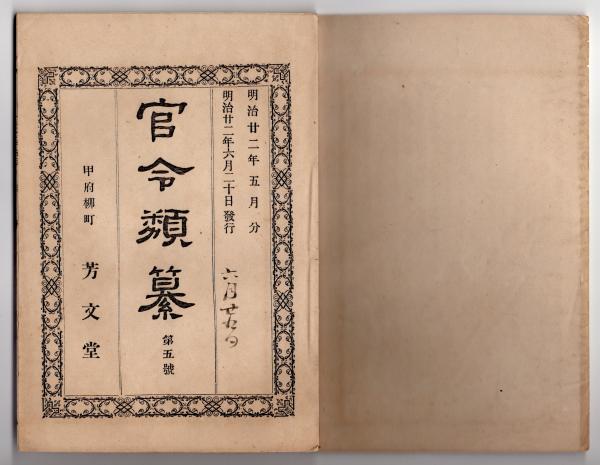 明治廿二年五月分
明治廿二年六月二十日發行
六月廿五日
官令類纂
第五號
甲府柳町
芳文堂